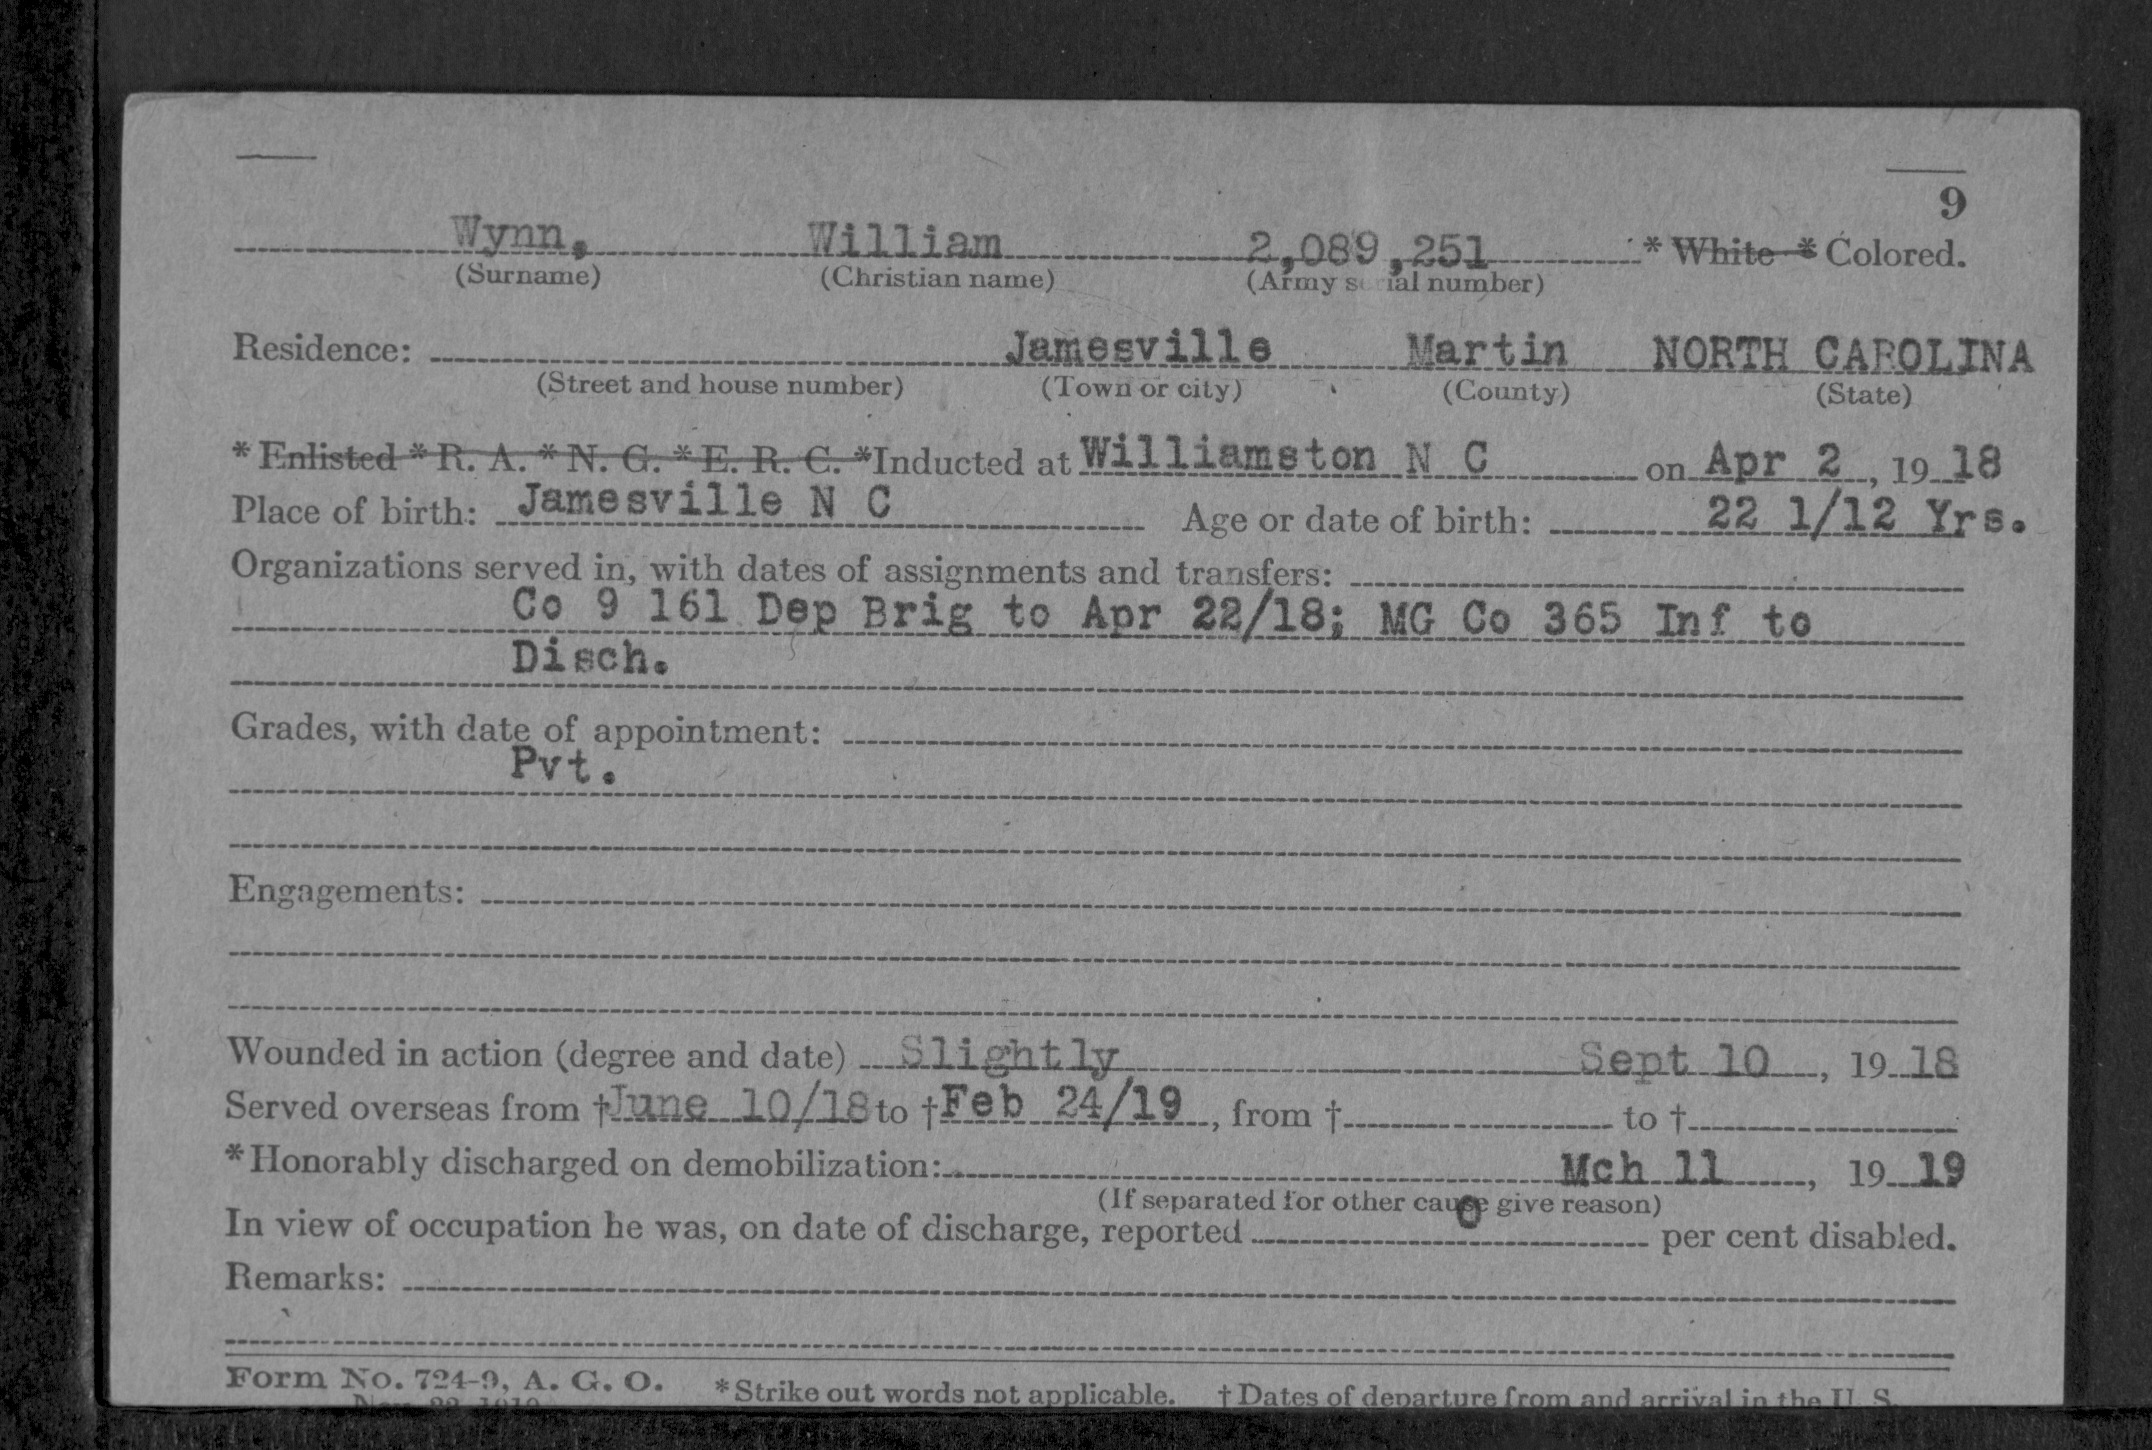 9
Wynn, William 2,089,251 * White * Colored.
(Surname) (Christian name) (Army serial number)
Residence: Jamesville Martin NORTH CAROLINA
(Street and house number) (Town or city) (County) (State)
* Enlisted * R. A. * N. G. * E. R. C. *Inducted at Williamston N C on Apr 2, 1918
Place of birth: Jamesville N C Age or date of birth: 22 1/12 Yrs.
Organizations served in, with dates of assignments and transfers:
Co 9 161 Dep Brig to Apr 22/18; MG Co 365 Inf to
Disch.
Grades, with date of appointment:
Pvt.
Engagements:
Wounded in action (degree and date) Slightly Sept 10, 1918
Served overseas from †June 10/18 to †Feb 24/19, from † to †
*Honorably discharged on demobilization: Mch 11, 1919
(If separated for other cause give reason)
In view of occupation he was, on date of discharge, reported 0 per cent disabled.
Remarks:
Form No. 724-9, A. G. O. *Strike out words not applicable. †Dates of departure from and arrival in the U. S.